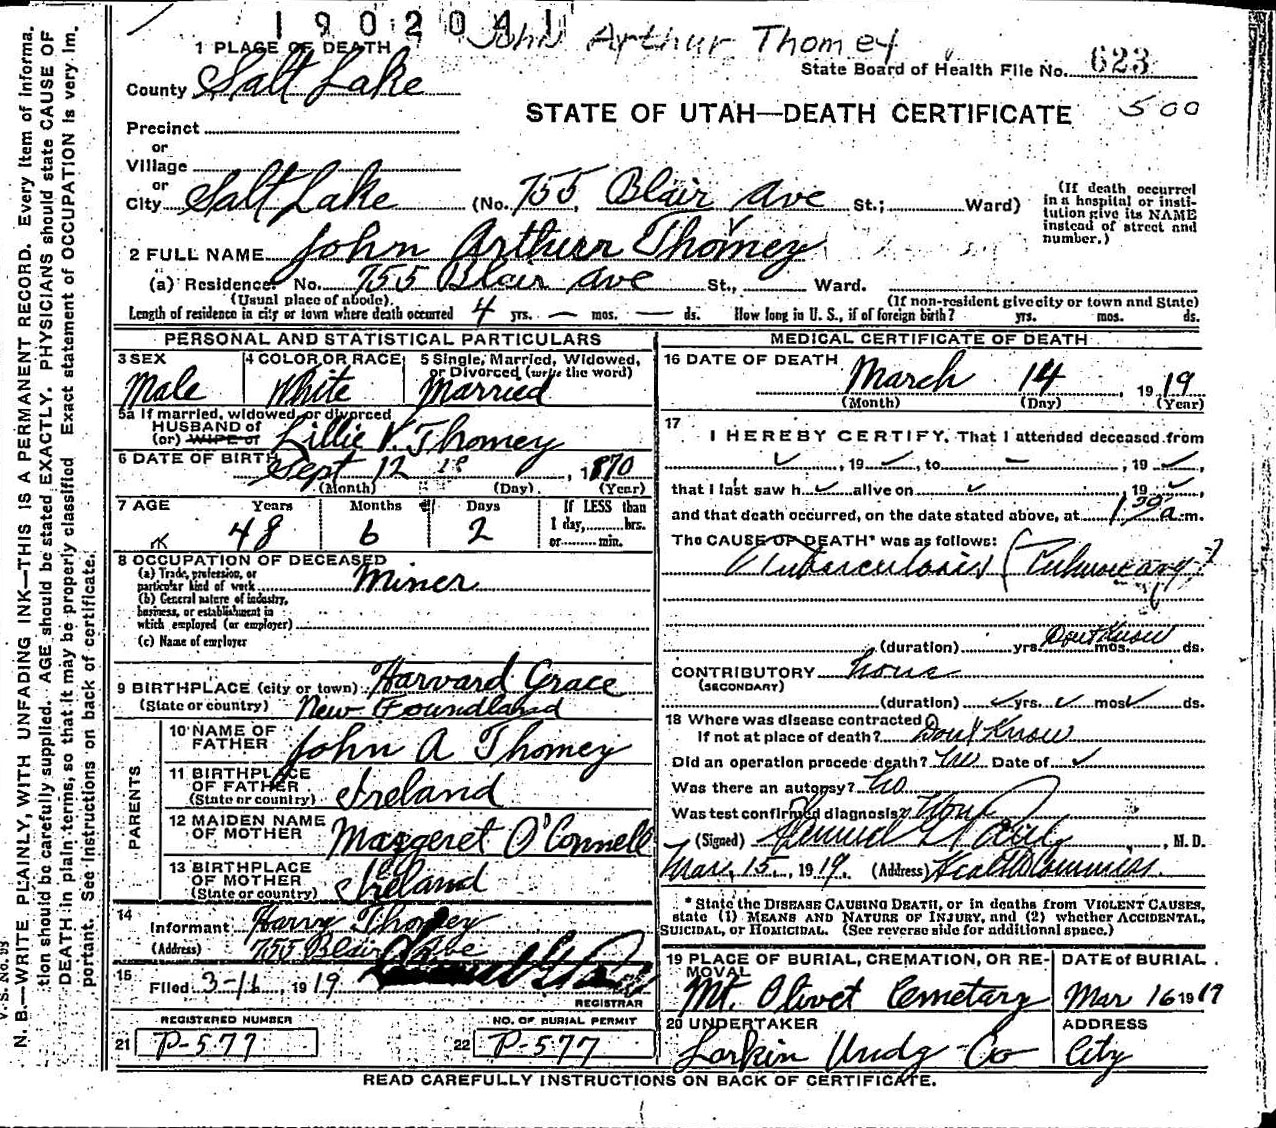 1902041
John Arthur Thomey
1 PLACE OF DEATH
State Board of Health File No. 623
County Salt Lake
STATE OF UTAH—DEATH CERTIFICATE 500
Precinct
or
Village
or
City Salt Lake (No. 755 Blair Ave St.; Ward)
(If death occurred in a hospital or insti-
tution give its NAME
instead of street and
number.)
2 FULL NAME John Arthurr Thomey
(a) Residence. No. 755 Blair Ave St., Ward.
(Usual place of abode) (If non-resident give city or town and State)
Length of residence in city or town where death occurred 4 yrs. — mos. — ds. How long in U. S., if of foreign birth? yrs. mos. ds.
PERSONAL AND STATISTICAL PARTICULARS
3 SEX 4 COLOR OR RACE 5 Single, Married, Widowed,
or Divorced (write the word)
Male White Married
5a If married, widowed, or divorced
HUSBAND of
(or) WIFE of Lillie V. Thomey
6 DATE OF BIRTH Sept 12, 1870
(Month) (Day) (Year)
7 AGE Years Months Days If LESS than
1 day, hrs.
or min.
48 6 2
8 OCCUPATION OF DECEASED
(a) Trade, profession, or
particular kind of work Miner
(b) General nature of industry,
business, or establishment in
which employed (or employer)
(c) Name of employer
9 BIRTHPLACE (city or town) Harvard Grace
(State or country) New Foundland
PARENTS
10 NAME OF
FATHER John A Thomey
11 BIRTHPLACE
OF FATHER
(State or country) Ireland
12 MAIDEN NAME
OF MOTHER Margeret O'Connell
13 BIRTHPLACE
OF MOTHER
(State or country) Ireland
14
Informant Harry Thomey
(Address) 755 Blair Ave
15
Filed 3-16, 1919
REGISTRAR
REGISTERED NUMBER NO. OF BURIAL PERMIT
21 P-577 22 P-577
MEDICAL CERTIFICATE OF DEATH
16 DATE OF DEATH March 14, 1919
(Month) (Day) (Year)
17
I HEREBY CERTIFY, That I attended deceased from
✓, 19 ✓, to —, 19 ✓,
that I last saw h ✓ alive on ✓, 19 ✓,
and that death occurred, on the date stated above, at 1 30 a m.
The CAUSE OF DEATH* was as follows:
Tuberculosis (Pulmonary?
(duration) yrs. Dont Know mos. ds.
CONTRIBUTORY None
(SECONDARY)
(duration) ✓ yrs. ✓ mos ✓ ds.
18 Where was disease contracted
If not at place of death? Dont Know
Did an operation precede death? no Date of ✓
Was there an autopsy? no
Was test confirmed diagnosis? None
(Signed) Samuel G. Paul, M. D.
Mar, 15, 1919. (Address) Health Commiss.
* State the DISEASE CAUSING DEATH, or in deaths from VIOLENT CAUSES,
state (1) MEANS AND NATURE OF INJURY, and (2) whether ACCIDENTAL,
SUICIDAL, or HOMICIDAL. (See reverse side for additional space.)
19 PLACE OF BURIAL, CREMATION, OR RE-
MOVAL DATE of BURIAL
Mt. Olivet Cemetary Mar 16 1919
20 UNDERTAKER ADDRESS
Larkin Undg Co City
READ CAREFULLY INSTRUCTIONS ON BACK OF CERTIFICATE.
V. S. No. 99
N. B.—WRITE PLAINLY, WITH UNFADING INK—THIS IS A PERMANENT RECORD. Every item of informa-
tion should be carefully supplied. AGE should be stated EXACTLY. PHYSICIANS should state CAUSE OF
DEATH in plain terms, so that it may be properly classified. Exact statement of OCCUPATION is very im-
portant. See instructions on back of certificate.